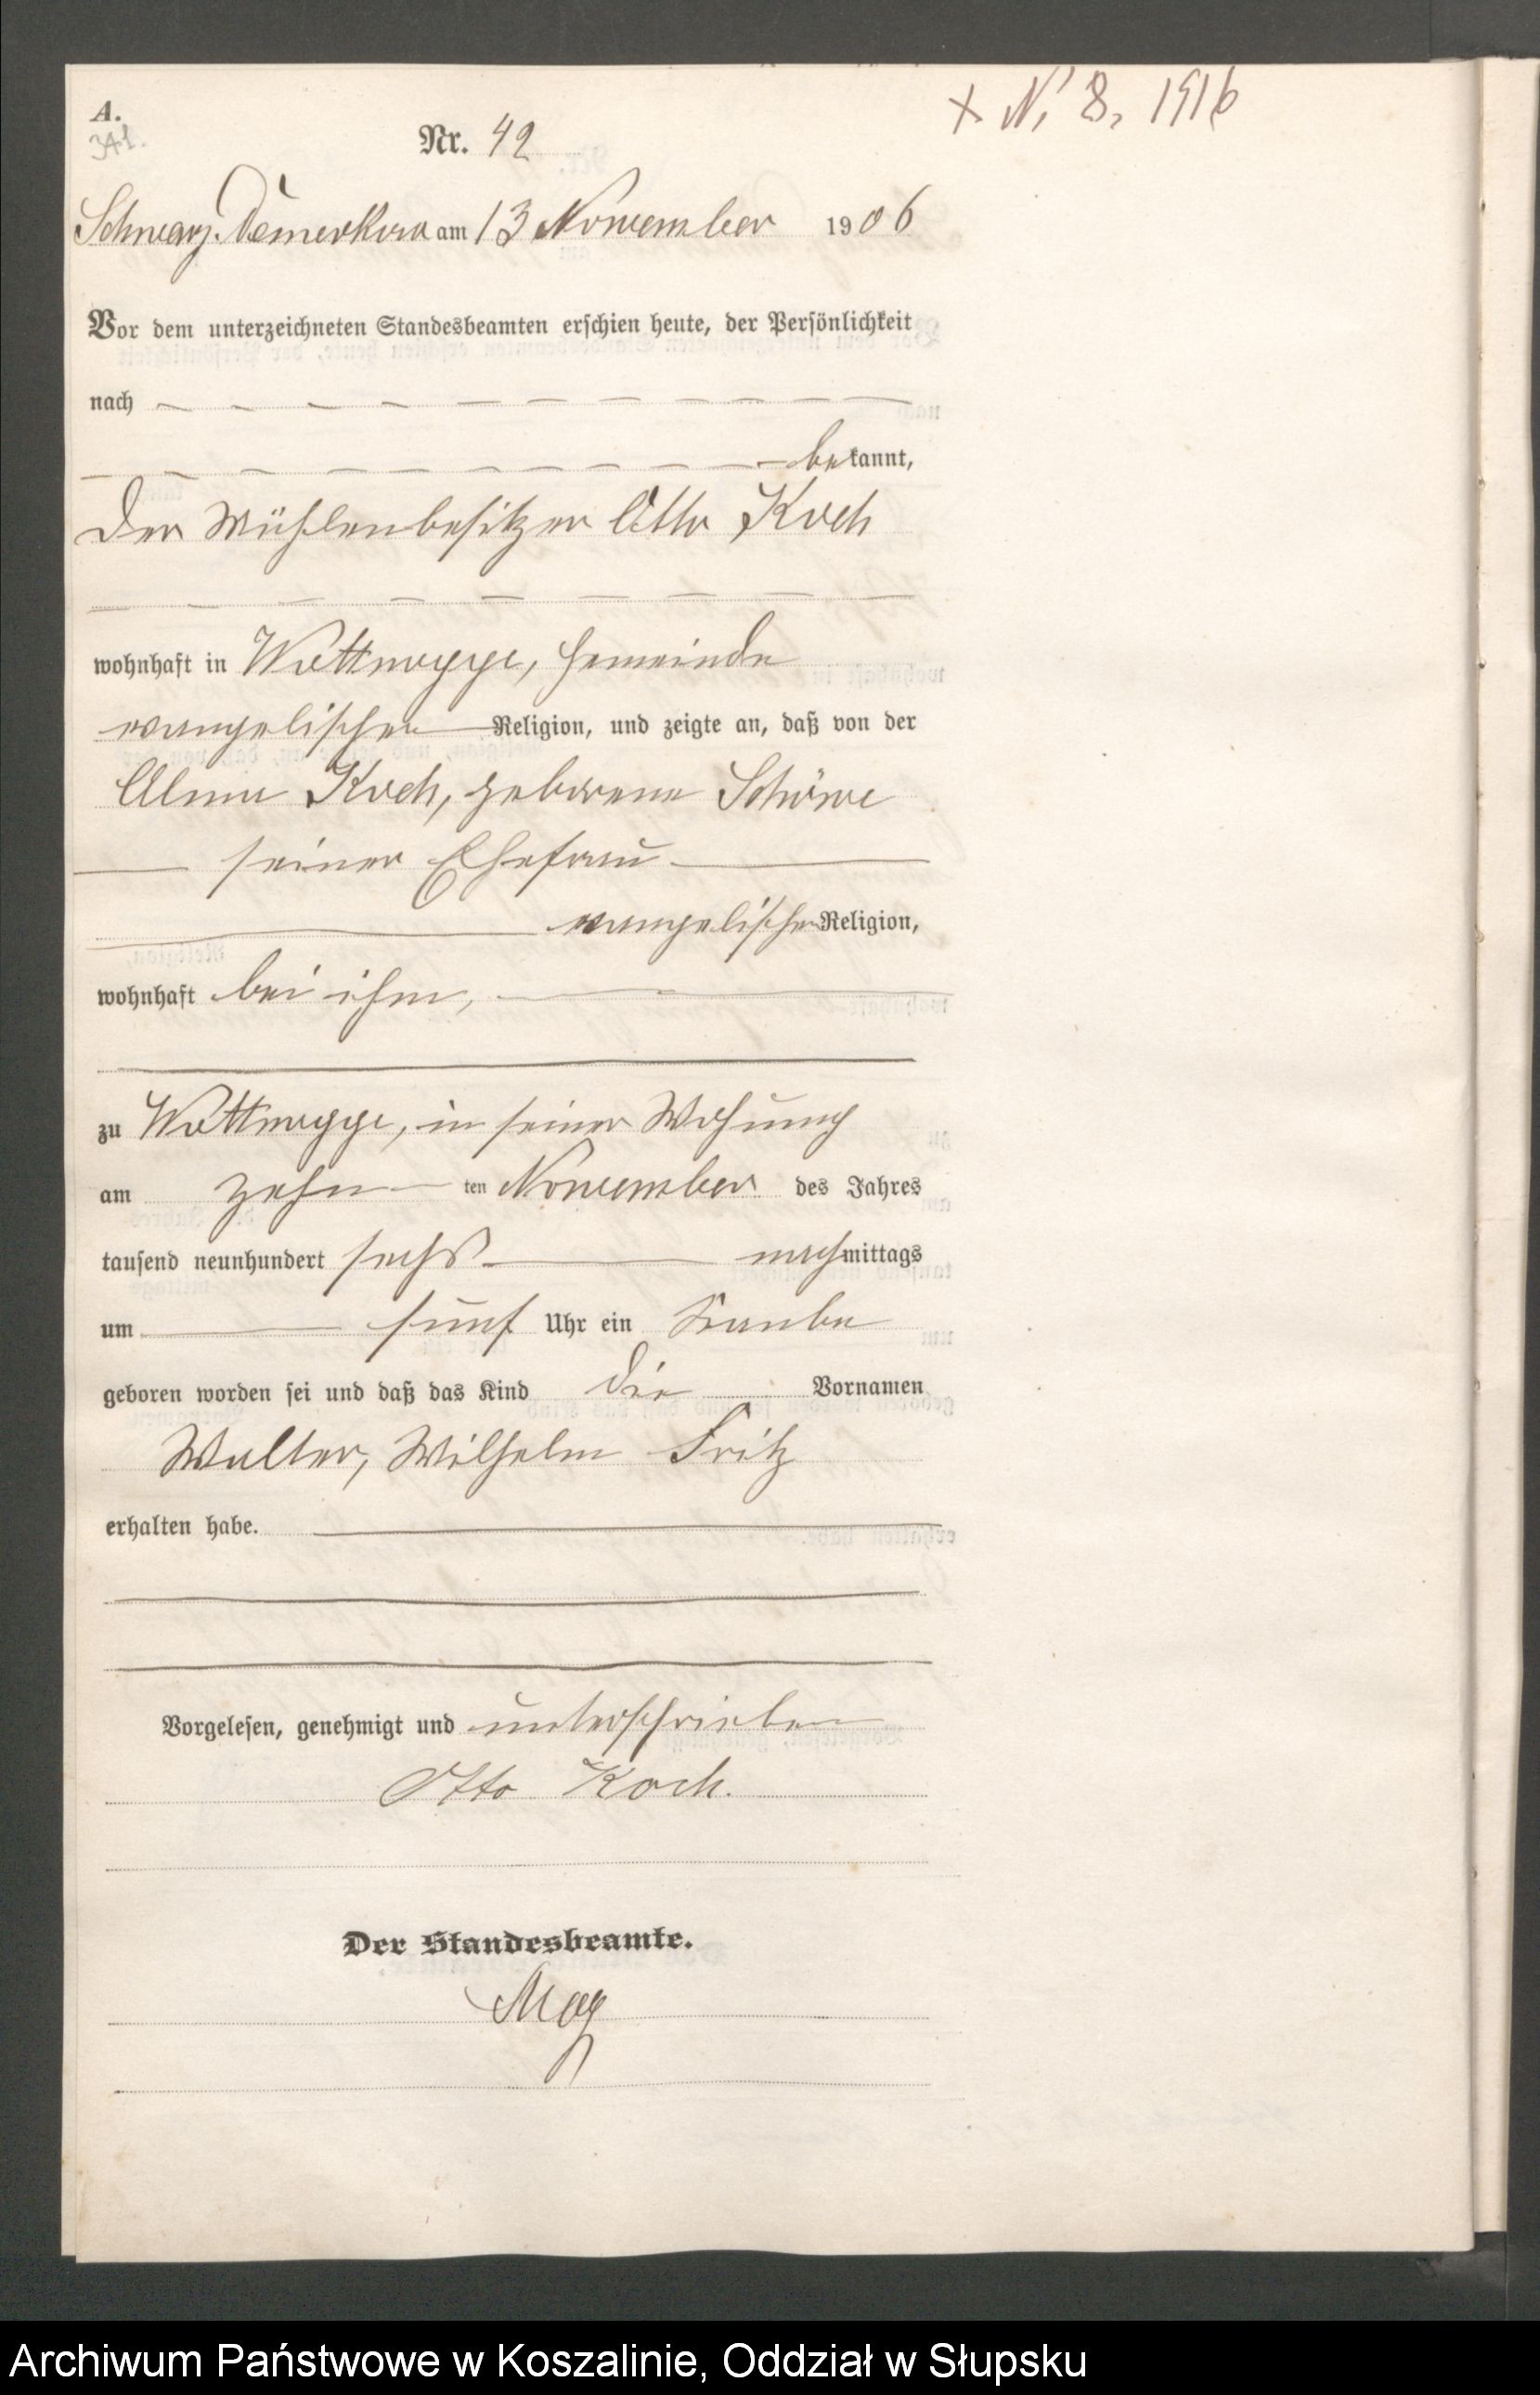 A.
341.
+ N. 8. 1916
Nr. 42
Schwarz Damerkow am 13 November 1906
Vor dem unterzeichneten Standesbeamten erschien heute, der Persönlichkeit
nach
bekannt,
der Mühlenbesitzer Otto Koch
wohnhaft in Wottnogge, Gemeinde
evangelischer Religion, und zeigte an, daß von der
Alma Koch, geborene Schöwe
seiner Ehefrau
evangelischer Religion,
wohnhaft bei ihm,
zu Wottnogge, in seiner Wohnung
am zehn ten November des Jahres
tausend neunhundert sechs nachmittags
um fünf Uhr ein Knabe
geboren worden sei und daß das Kind die Vornamen
Walter, Wilhelm Fritz
erhalten habe.
Vorgelesen, genehmigt und unterschrieben
Otto Koch.
Der Standesbeamte.
Archiwum Państwowe w Koszalinie, Oddział w Słupsku